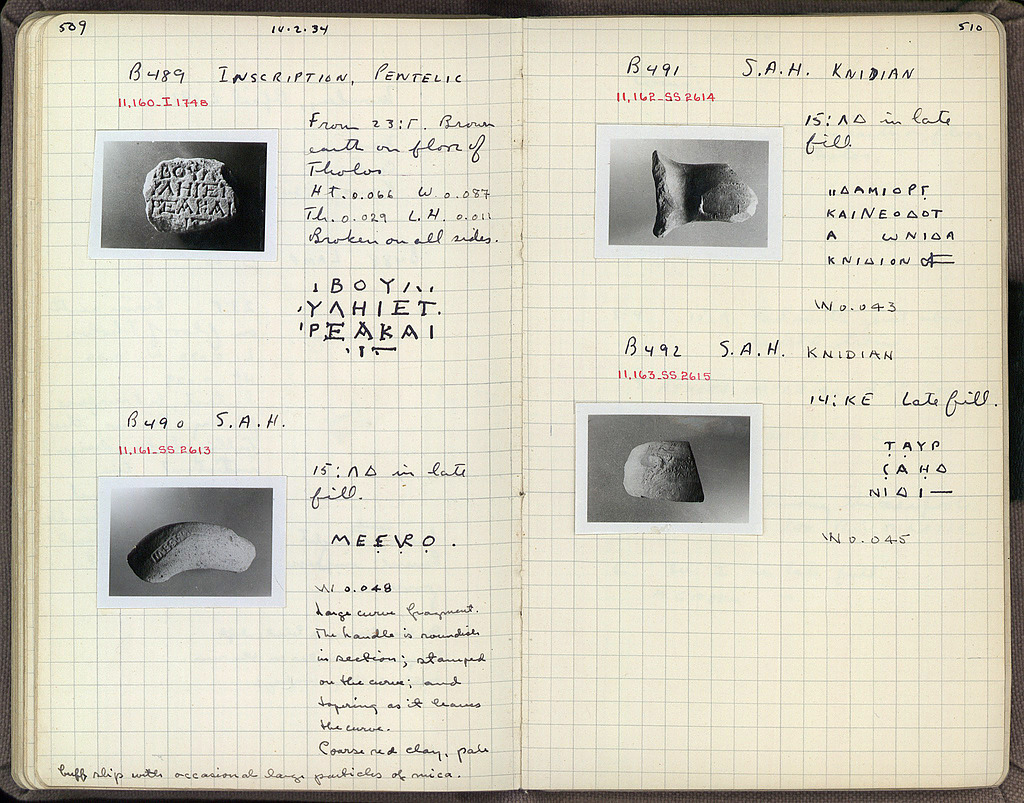 509
14.2.34
B489 INSCRIPTION, PENTELIC
11,160_I 1748
From 23:Γ. Brown
earth on floor of
Tholos
Ht. 0.066 W. 0.087
Th. 0.029 L.H. 0.011
Broken on all sides.
ΒΟΥ
ΥΛΗΙΕΤ
ΡΕΑΚΑΙ
B490 S.A.H.
11,161_SS 2613
15:ΛΔ in late
fill.
W 0.048
Large curve fragment.
The handle is roundish
in section; stamped
on the curve; and
tapering as it leaves
the curve.
Coarse red clay, pale
buff slip with occasional large particles of mica.
510
B491 S.A.H. KNIDIAN
11,162_SS 2614
15:ΛΔ in late
fill.
ΔΑΜΙΟΡΓ
ΚΑΙΝΕΟΔΟΤ
Α ΩΝΙΔΑ
ΚΝΙΔΙΟΝ
W 0.043
B492 S.A.H. KNIDIAN
11,163_SS 2615
14:ΚΕ Late fill.
ΤΑΥΡ
ΑΗΔ
ΝΙΔΙ
W 0.045